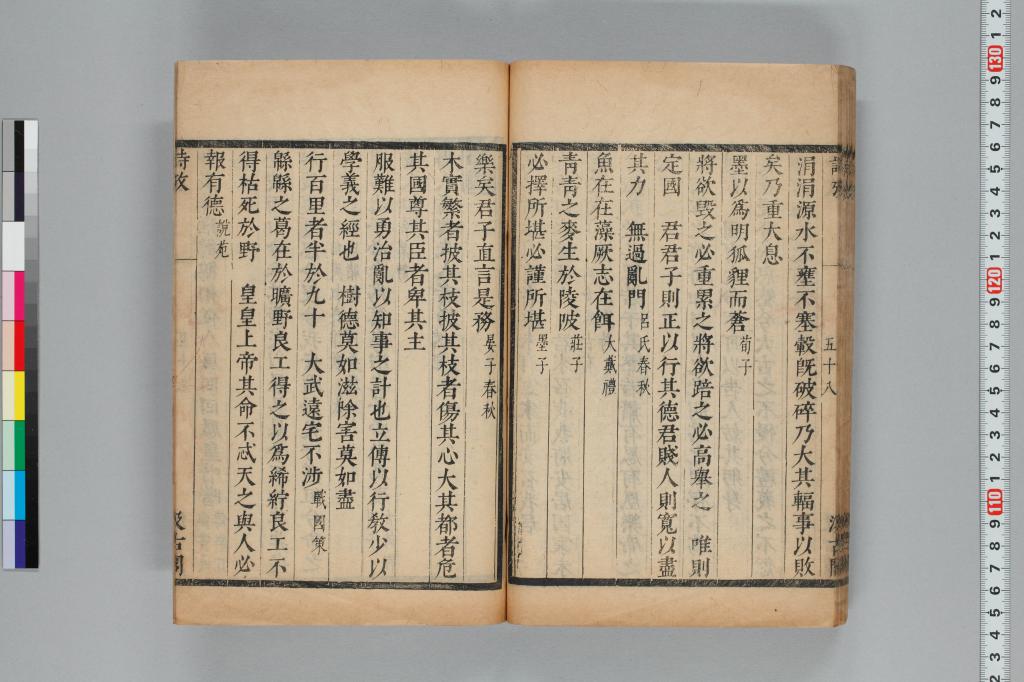 涓涓源水不壅不塞轂旣破碎乃大其輻事以敗
矣乃重大息
墨以爲明狐貍而蒼 荀子
將欲毀之必重累之將欲踣之必高舉之 唯則
定國 君君子則正以行其德君賤人則寬以盡
其力 無過亂門 呂氏春秋
魚在在藻厥志在餌 大戴禮
靑靑之麥生於陵陂 莊子
必擇所堪必謹所堪 墨子
五十八
樂矣君子直言是務 晏子春秋
木實繁者披其枝披其枝者傷其心大其都者危
其國尊其臣者卑其主
服難以勇治亂以知事之計也立傅以行敎少以
學義之經也 樹德莫如滋除害莫如盡
行百里者半於九十 大武遠宅不涉 戰國策
緜緜之葛在於曠野良工得之以爲絺紵良工不
得枯死於野 皇皇上帝其命不忒天之與人必
報有德 說苑
詩攷
汲古閣